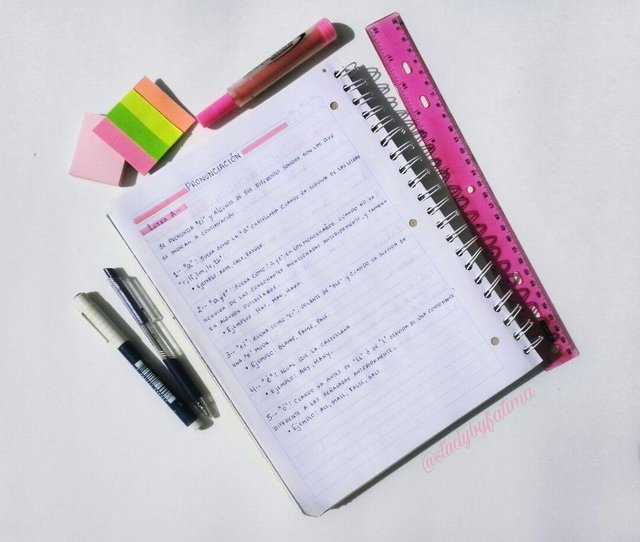 PRONUNCIACIÓN
LETRA A -
SE PRONUNCIA "ei" Y ALGUNOS DE SUS DIFERENTES SONIDOS SON LOS QUE
SE INDICAN A CONTINUACIÓN:
1- "a": SUENA COMO LA "a" CASTELLANA CUANDO VA SEGUIDA DE LAS LETRAS
• EJEMPLO: ARM, CALF, FATHER.
2- "a y e": SUENA COMO "a y e" EN LOS MONOSÍLABOS CUANDO NO VA
SEGUIDA DE LAS CONSONANTES MENCIONADAS ANTERIORMENTE, Y TAMBIÉN
EN ALGUNOS POLISÍLABOS.
• EJEMPLOS: HAT, MAN, HAND.
3- "ei": SUENA COMO "ei", DELANTE DE Y CUANDO VA SEGUIDA DE
UNA "e" MUDA.
• EJEMPLO: BLAME, FAME, PALE
4- "e": IGUAL QUE LA CASTELLANA
• EJEMPLOS: ANY, MANY.
5- "o": CUANDO VA ANTES DE "ll" Ó DE "l" SEGUIDA DE UNA CONSONANTE
DIFERENTE A LAS SEÑALADAS ANTERIORMENTE.
• EJEMPLO: ALL, FALSE, SALT
@studybyfatima